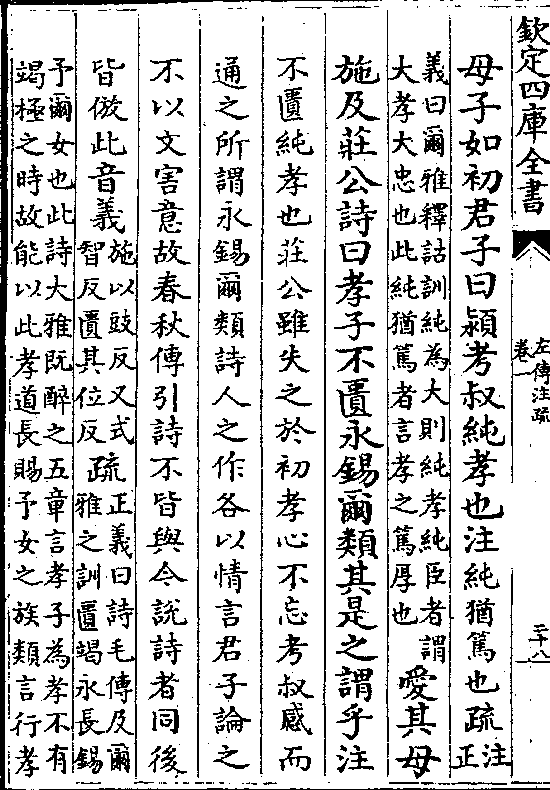 欽定四庫全書
左傳注疏
卷一
二十八
母子如初君子曰潁考叔純孝也注純猶篤也疏注
正
義曰爾雅釋詁訓純為大則純孝純臣者謂
大孝大忠也此純猶篤者言孝之篤厚也
愛其母
施及莊公詩曰孝子不匱永錫爾類其是之謂乎注
不匱純孝也莊公雖失之於初孝心不忘考叔感而
通之所謂永錫爾類詩人之作各以情言君子論之
不以文害意故春秋傳引詩不皆與今說詩者同後
皆倣此音義
施以豉反又式
智反匱其位反
疏
正義曰詩毛傳及爾
雅之訓匱竭永長錫
予爾女也此詩大雅既醉之五章言孝子為孝不有
竭極之時故能以此孝道長賜予女之族類言行孝